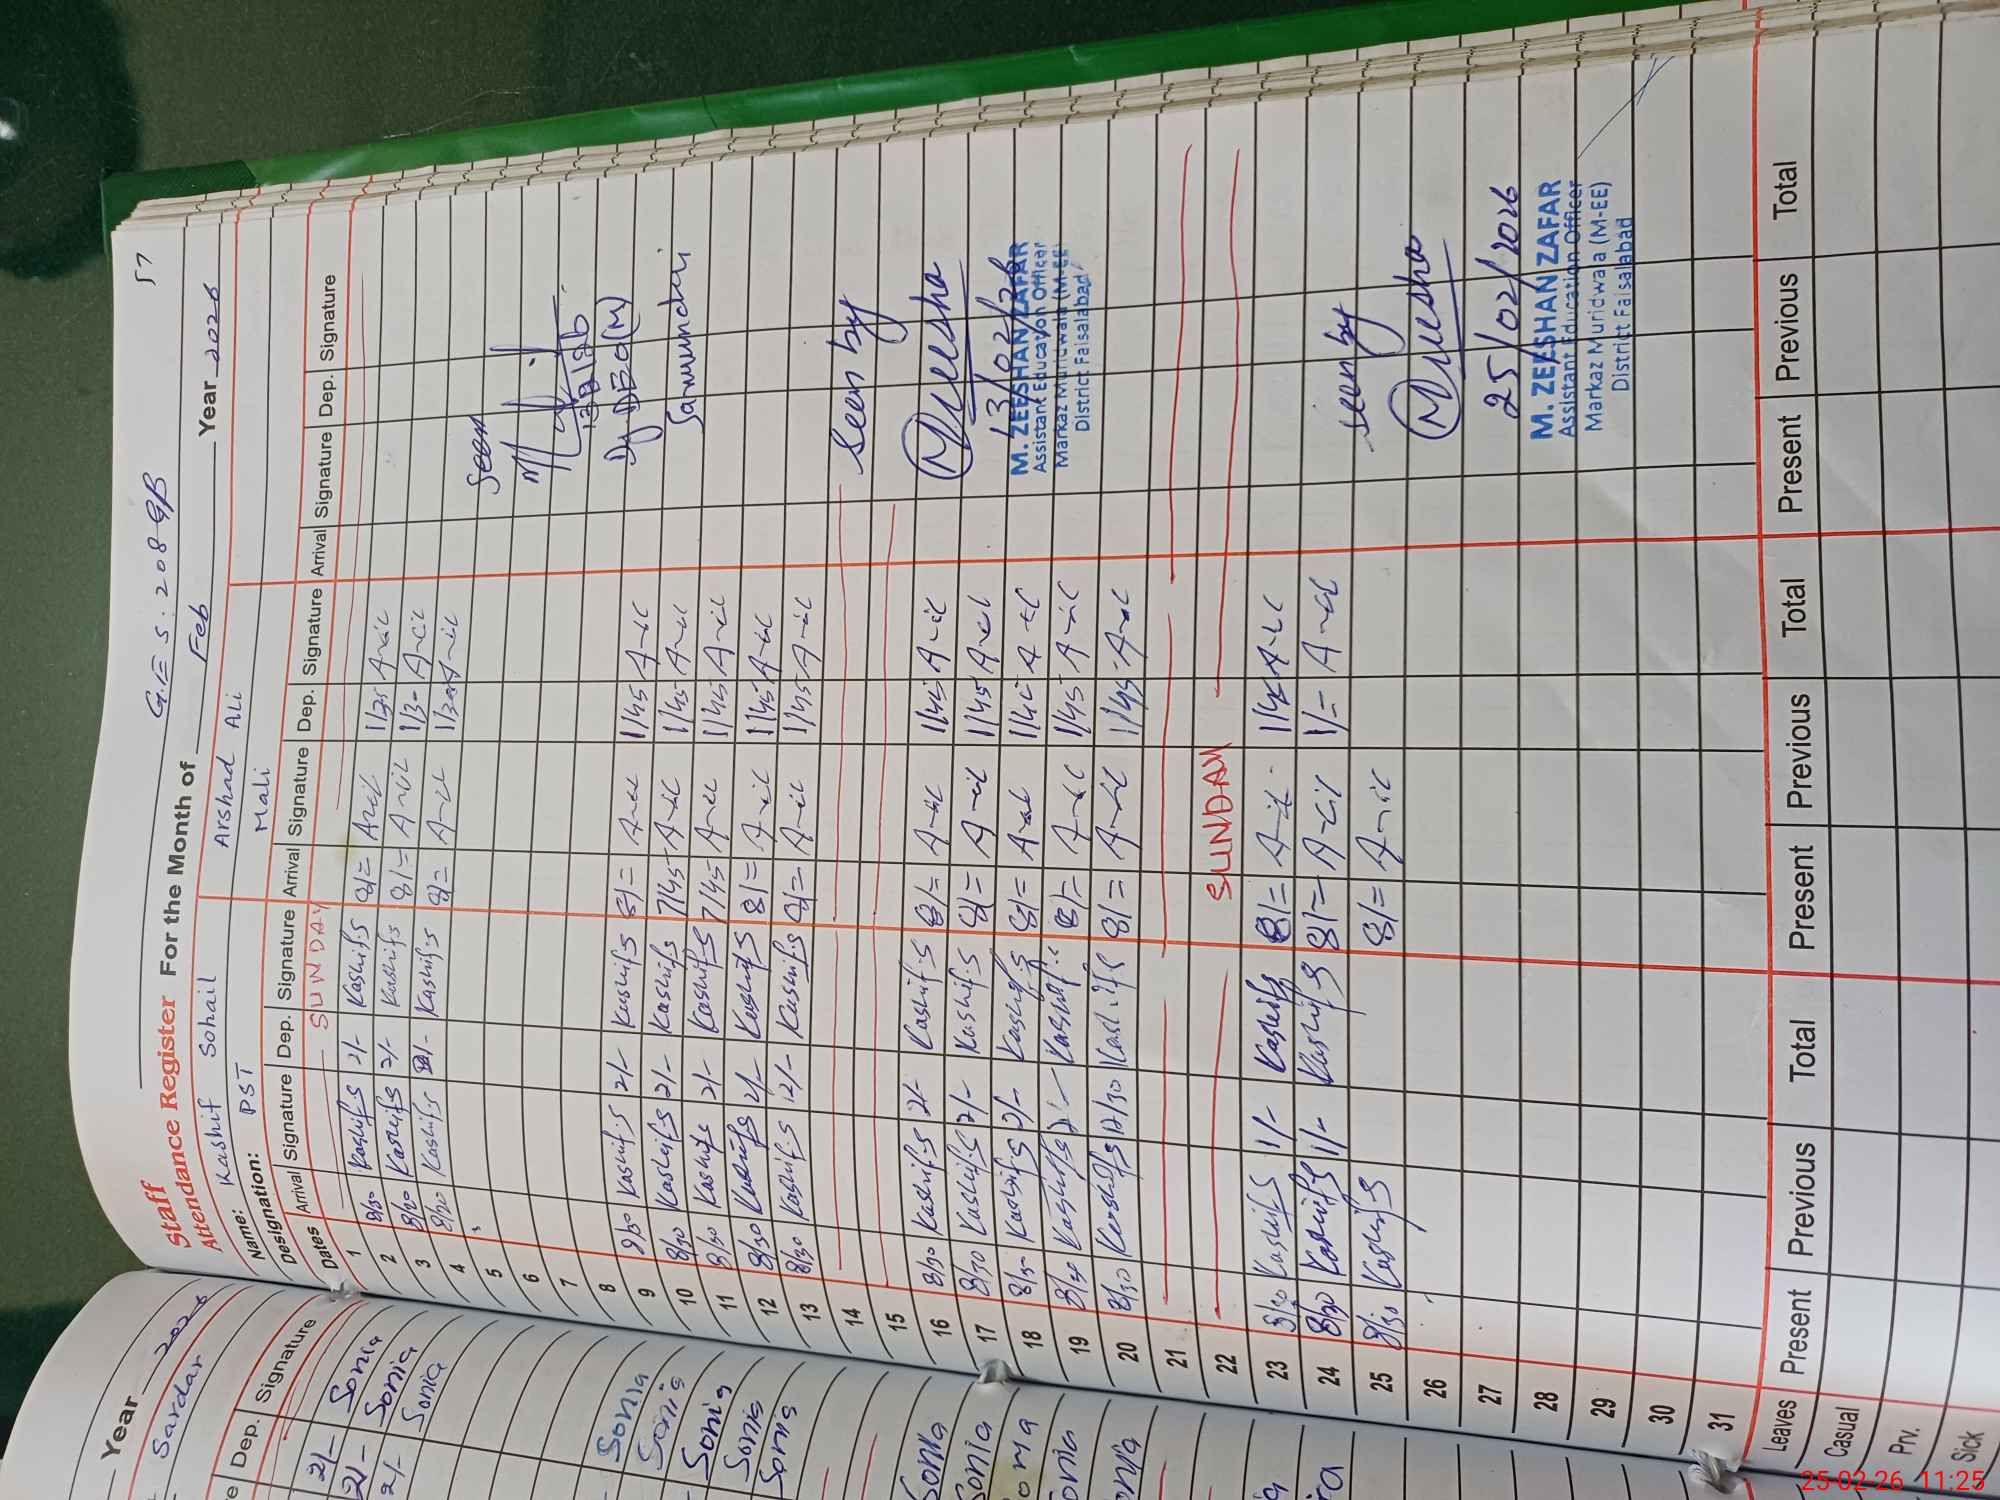 57
G.E.S. 208 GB
Staff
Attendance Register For the Month of Feb Year 2026
Name: Kashif Sohail Arshad Ali
Designation: PST Mali
Dates Arrival Signature Dep. Signature Arrival Signature Dep. Signature Arrival Signature Dep. Signature
1 SUNDAY
2 8/30 Kashif.S 2/- Kashif.S 8/= 1/35
3 8/30 Kashif.S 2/- Kashif.S 8/= 1/30
4 8/30 Kashif.S Kashif.S 8/= 1/30
5
6
7
8
9 8/30 Kashif.S 2/- Kashif.S 8/= 1/45
10 8/30 Kashif.S 2/- Kashif.S 7/45 1/45
11 8/30 Kashif.S 2/- Kashif.S 7/45 1/45
12 8/30 Kashif.S 2/- Kashif.S 8/= 1/45
13 8/30 Kashif.S 12/- Kashif.S 8/= 1/45
14
15
16 8/30 Kashif.S 2/- Kashif.S 8/= 1/45
17 8/30 Kashif.S 2/- Kashif.S 8/= 1/45
18 8/30 Kashif.S 2/- Kashif.S 8/= 1/45
19 8/30 Kashif.S 2/- Kashif.S 8/= 1/45
20 8/30 Kashif.S 12/30 Kashif.S 8/= 1/45
21
22 SUNDAY
23 8/30 Kashif.S 1/- Kashif.S 8/= 1/45
24 8/30 Kashif.S 1/- Kashif.S 8/= 1/=
25 8/30 Kashif.S 8/=
26
27
28
29
30
31
Seen
Dy. DEO (M)
Samundri
Seen by
13/02/26
M. ZEESHAN ZAFAR
Assistant Education Officer
Markaz Muridwala (M-EE)
District Faisalabad
Seen by
25/02/2026
M. ZEESHAN ZAFAR
Assistant Education Officer
Markaz Muridwala (M-EE)
District Faisalabad
Leaves Present Previous Total Present Previous Total Present Previous Total
Casual
Prv.
Sick
Year 2026
Sardar
Dep. Signature
2/- Sonia
2/- Sonia
2/- Sonia
Sonia
Sonia
Sonia
Sonia
Sonia
Sonia
Sonia
25-02-26 11:25